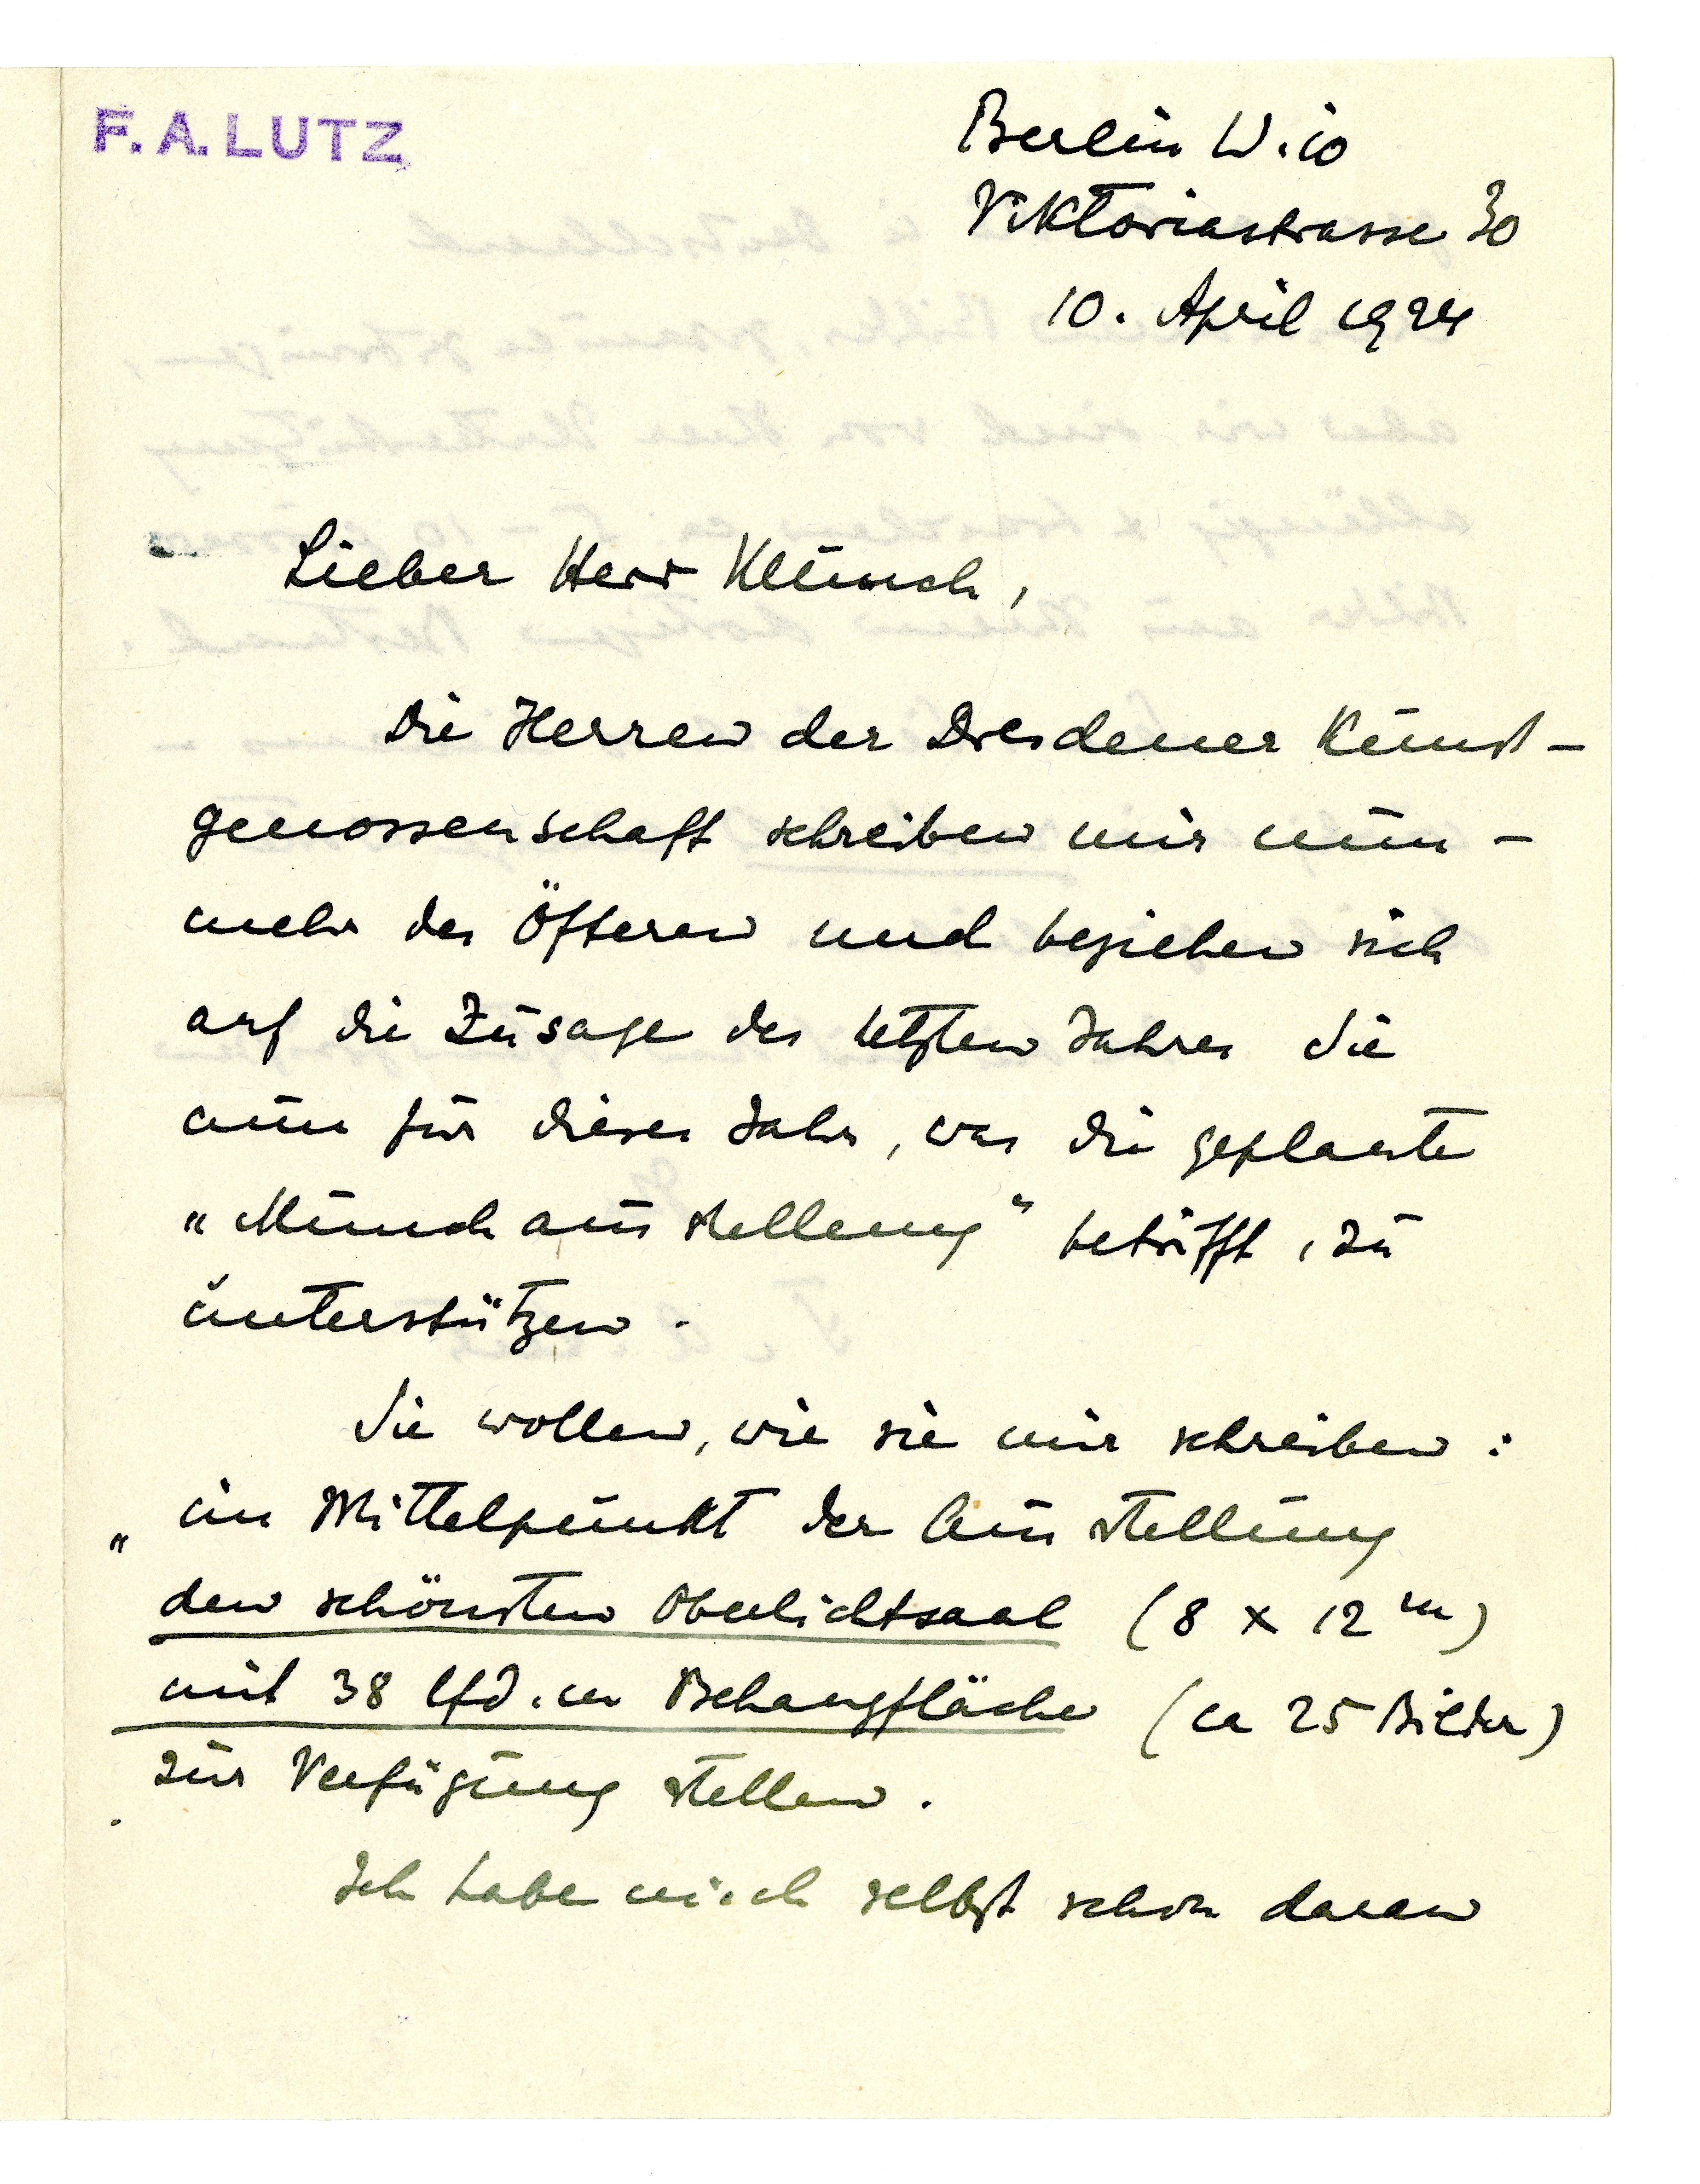 F. A. LUTZ
Berlin W. 10
Viktoriastrasse 30
10. April 1924
Lieber Herr Münch,
Die Herren der Dresdener Kunst-
genossenschaft schreiben mir nun-
mehr des Öfteren und beziehen sich
auf die Zusage des letzten Jahres Sie
nun für dieses Jahr, was die geplante
„Munch ausstellung" betrifft, zu
unterstützen.
Sie wollen, wie sie mir schreiben:
„im Mittelpunkt der Ausstellung
den schönsten Oberlichtsaal (8 x 12 m)
mit 38 lfd. m Behangfläche (ca 25 Bilder)
zur Verfügung stellen.
Ich habe mich selbst schon daran